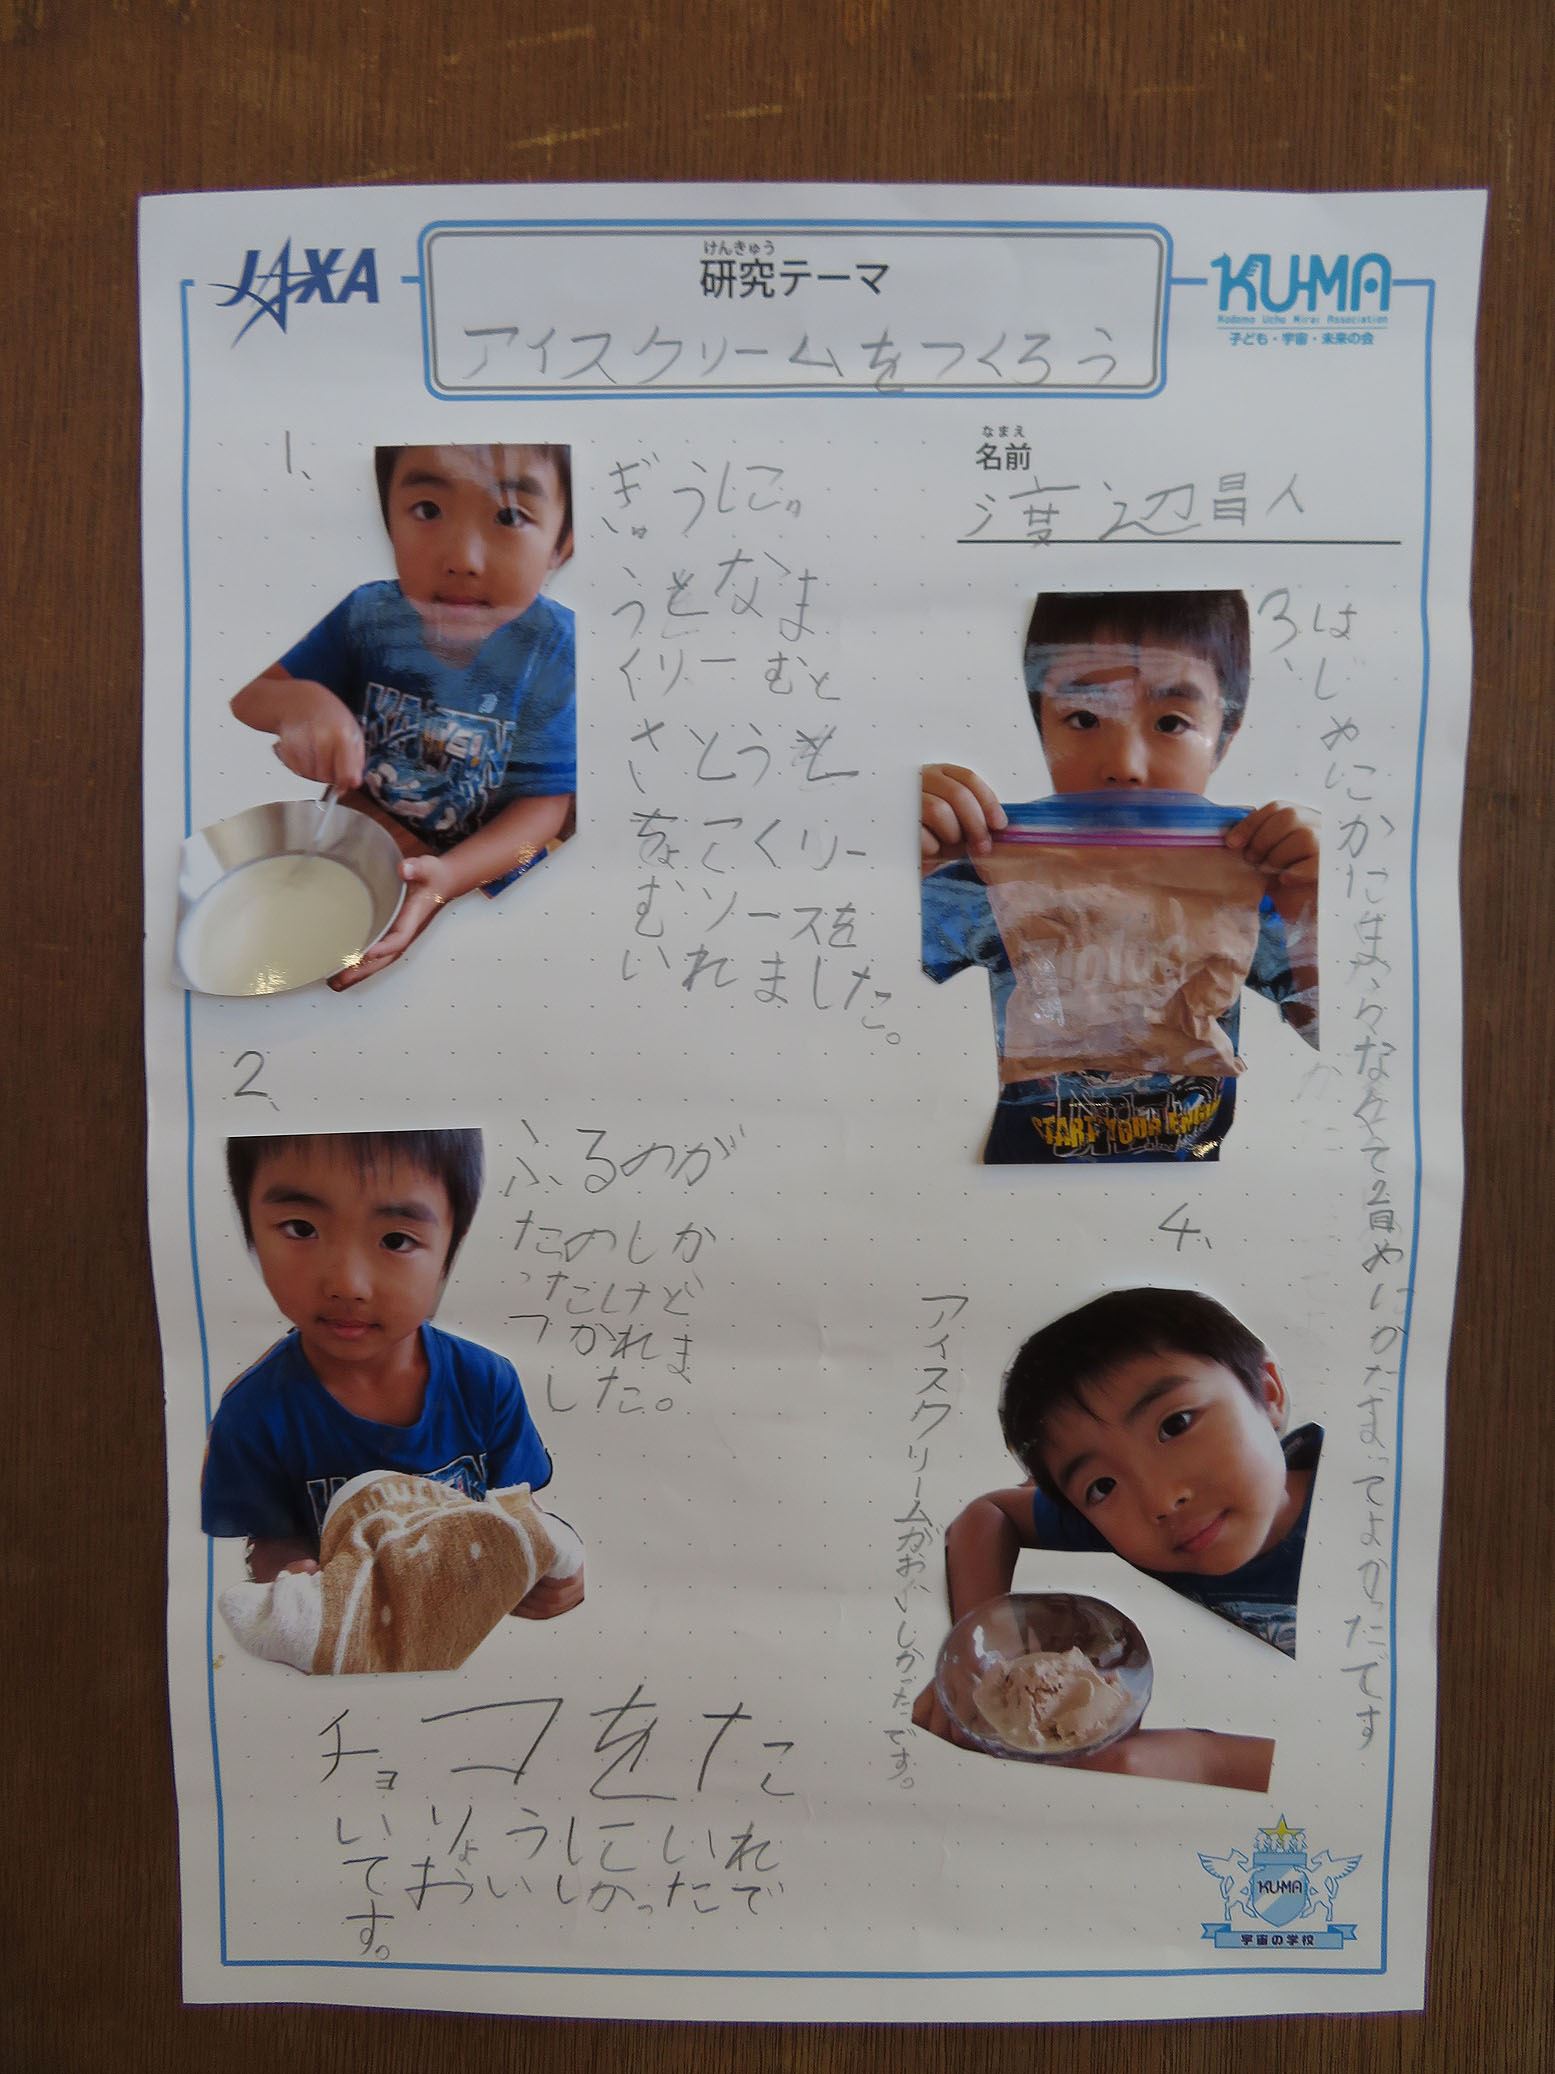 JAXA
けんきゅう
研究テーマ
アイスクリームをつくろう
KU-MA
Kodomo Uchu Mirai Association
子ども・宇宙・未来の会
なまえ
名前
渡辺昌人
1、
ぎゅうにゅ
うとなま
くりーむと
さとうと
ちょこくりー
むソースを
いれました。
2、
ふるのが
たのしか
ったけど
つかれま
した。
3、
はじめにかたまらなくて2回めにかたまってよかったです
START YOUR ENGINE
4、
アイスクリームがおいしかったです。
チョコをた
いりょうにいれ
ておいしかったで
す。
KU-MA
宇宙の学校